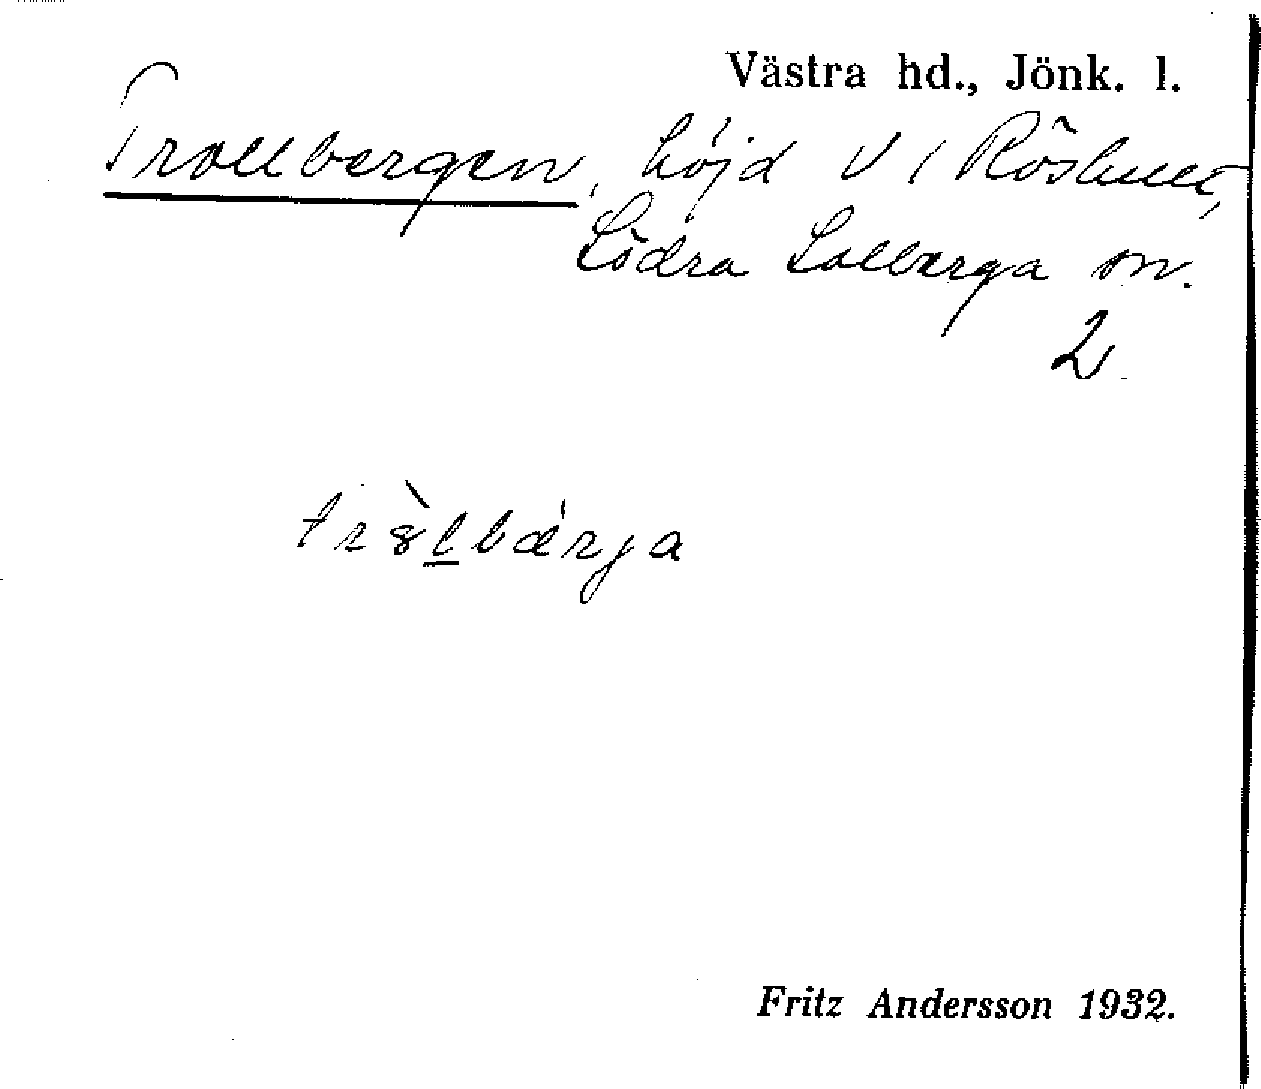 Västra hd., Jönk. l.
Trollbergen, höjd V i Röshult,
Södra Solberga sn.
2
Fritz Andersson 1932.